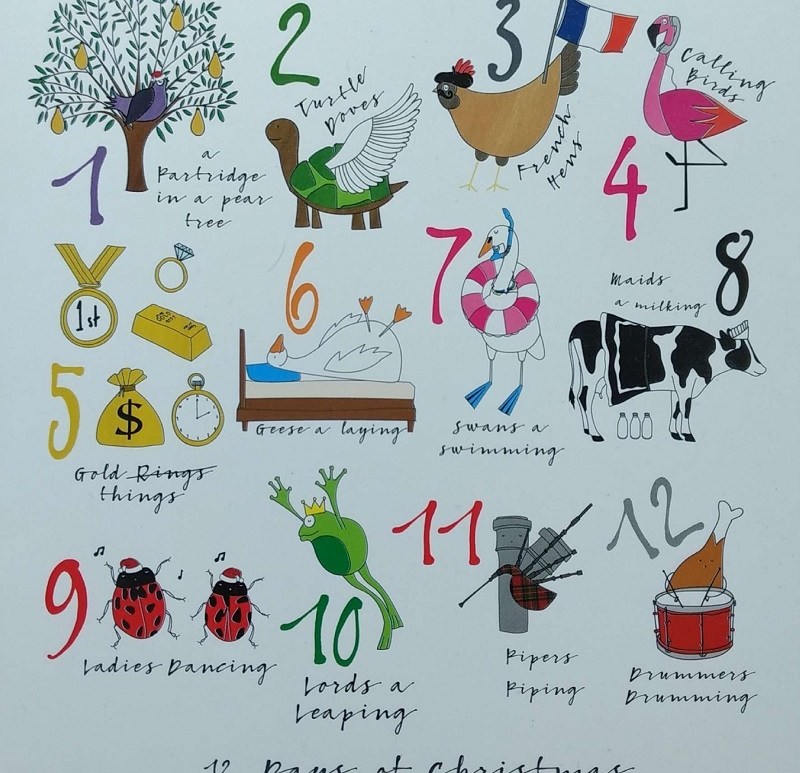 1
a
Partridge
in a pear
tree
2
Turtle
Doves
3
French
Hens
4
Calling
Birds
5
1st
$
Gold Rings
things
6
Geese a laying
7
Swans a
swimming
8
Maids
a milking
9
Ladies Dancing
10
Lords a
Leaping
11
Pipers
Piping
12
Drummers
Drumming
12 Days of Christmas